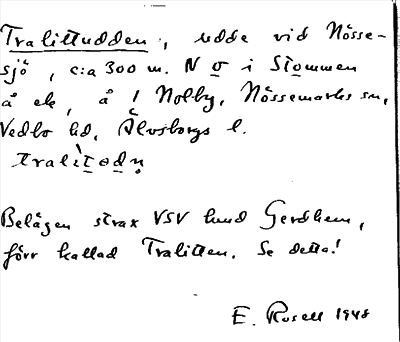 Tralittudden, udde vid Nösse-
sjö, c:a 300 m. N o i Stommen
å ek, å ! Nolby, Nössemarks sn,
Vedbo hd, Älvsborgs l.
Belägen strax VSV lund Gerdhem,
förr kallad Tralitten. Se detta!
E. Rosell 1948